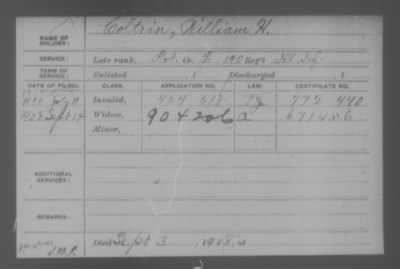 NAME OF SOLDIER: Coltrin, William H.
SERVICE: Late rank, Pvt. Co. E, 140 Reg't Ill. Inf.
TERM OF SERVICE: Enlisted , 1 Discharged , 1
DATE OF FILING. CLASS. APPLICATION NO. LAW. CERTIFICATE NO.
July 11 Invalid, 772 440
1908 Sept 14 Widow, 904206 a 671456
Minor,
ADDITIONAL SERVICES:
REMARKS:
Died Sept 3, 1908, at